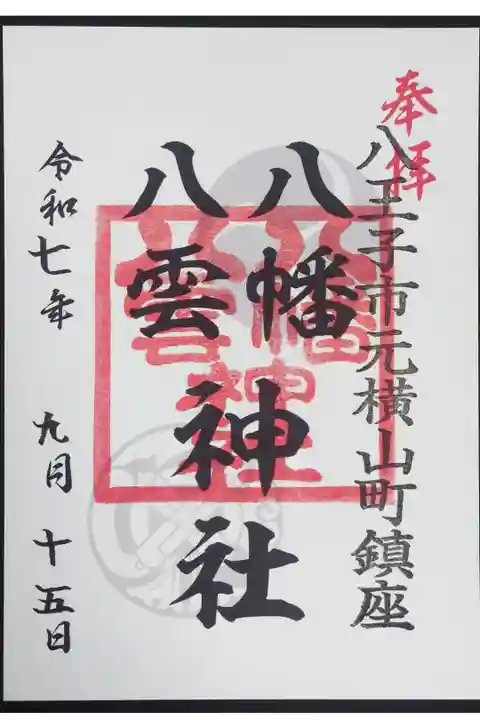 奉拝
八王子市元横山町鎮座
八幡
八雲
神社
令和七年 九月 十五日